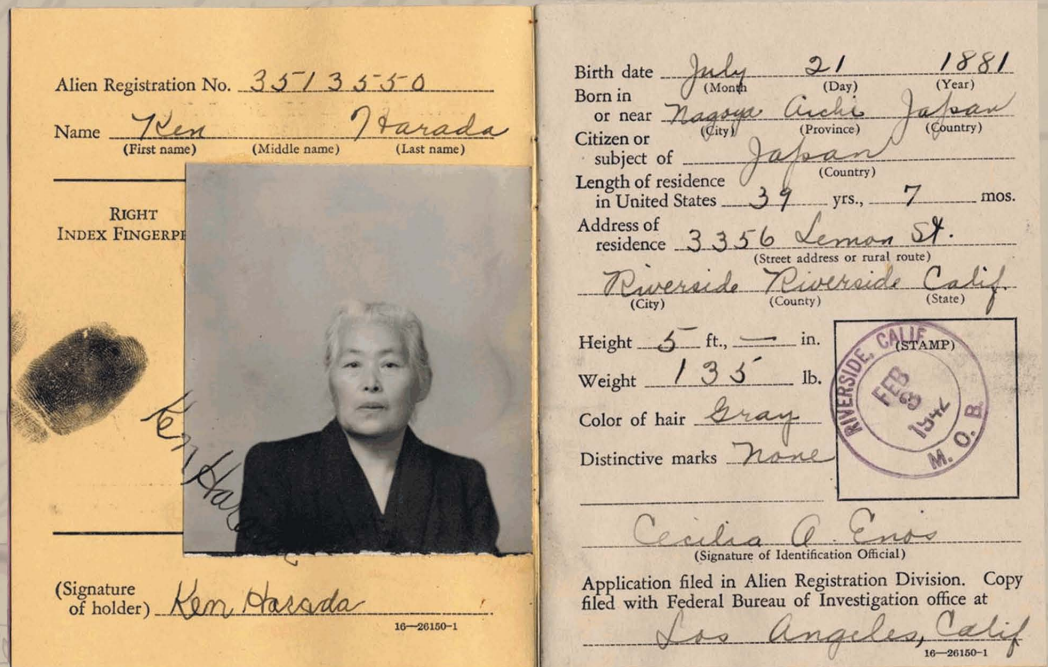 Alien Registration No. 3513550
Name Ken Harada
(First name) (Middle name) (Last name)
RIGHT
INDEX FINGERP
Ken Hara
(Signature
of holder) Ken Harada
16—26150-1
Birth date July 21 1881
(Month (Day) (Year)
Born in
or near Nagoya Aichi Japan
(City) (Province) (Country)
Citizen or
subject of Japan
(Country)
Length of residence
in United States 39 yrs., 7 mos.
Address of
residence 3356 Lemon St.
(Street address or rural route)
Riverside Riverside Calif.
(City) (County) (State)
Height 5 ft., — in.
Weight 135 lb.
Color of hair Gray
Distinctive marks None
(STAMP)
RIVERSIDE, CALIF.
FEB
1942
M. O. B.
Cecilia A. Enos
(Signature of Identification Official)
Application filed in Alien Registration Division. Copy
filed with Federal Bureau of Investigation office at
Los Angeles, Calif
16—26150-1